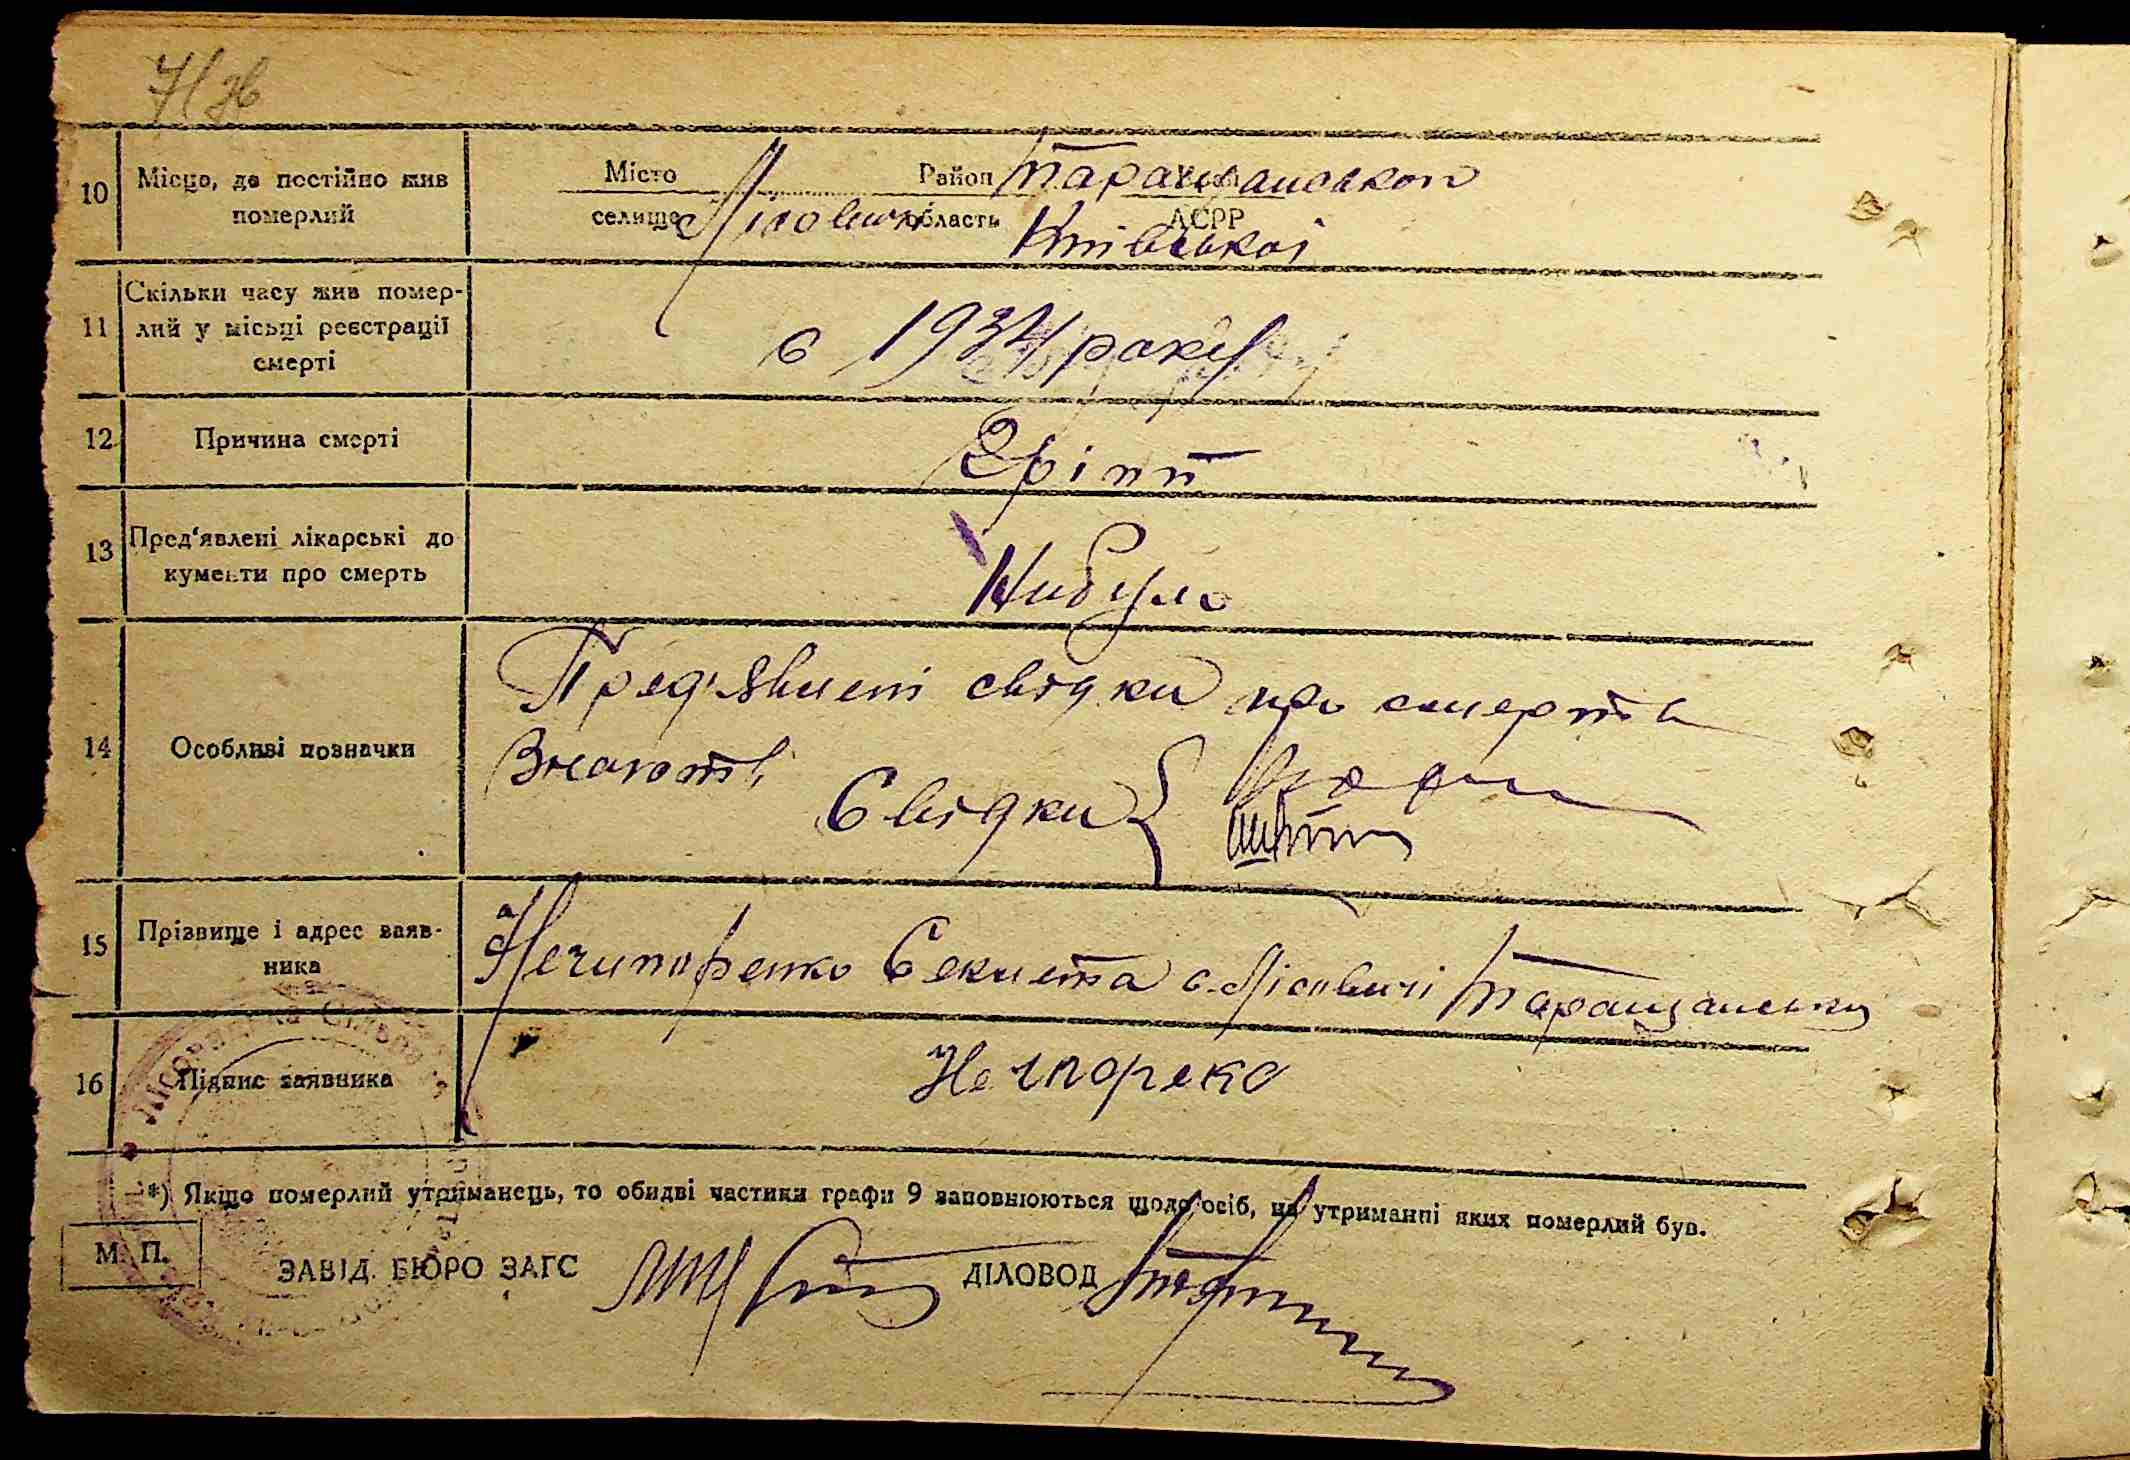 10 Місце, де постійно жив померлий
Місто Район Таращанської
селище Лісовичі область АСРР
Київської
11 Скільки часу жив помер-
лий у місьці реєстрації
смерті
с 1934 року
12 Причина смерті
Гріпп
13 Пред'явлені лікарські до
кументи про смерть
Нибуло
14 Особливі позначки
Пред'явлені свідки про смерть
Знають
Свідки
15 Прізвище і адрес заяв-
ника
Нечипоренко Секлета с. Лісовичі Таращанськ
16 Підпис заявника
Нечпореко
*) Якщо померлий утриманець, то обидві частини графи 9 заповнюються щодо осіб, на утриманні яких померлий був.
М. П.
ЗАВІД. БЮРО ЗАГС ДІЛОВОД